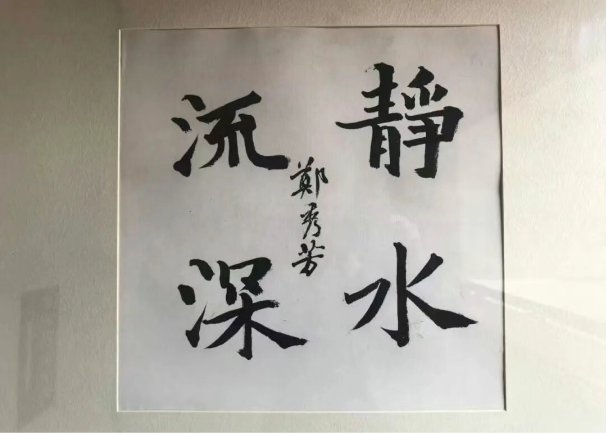 靜水
流深
鄭秀芳